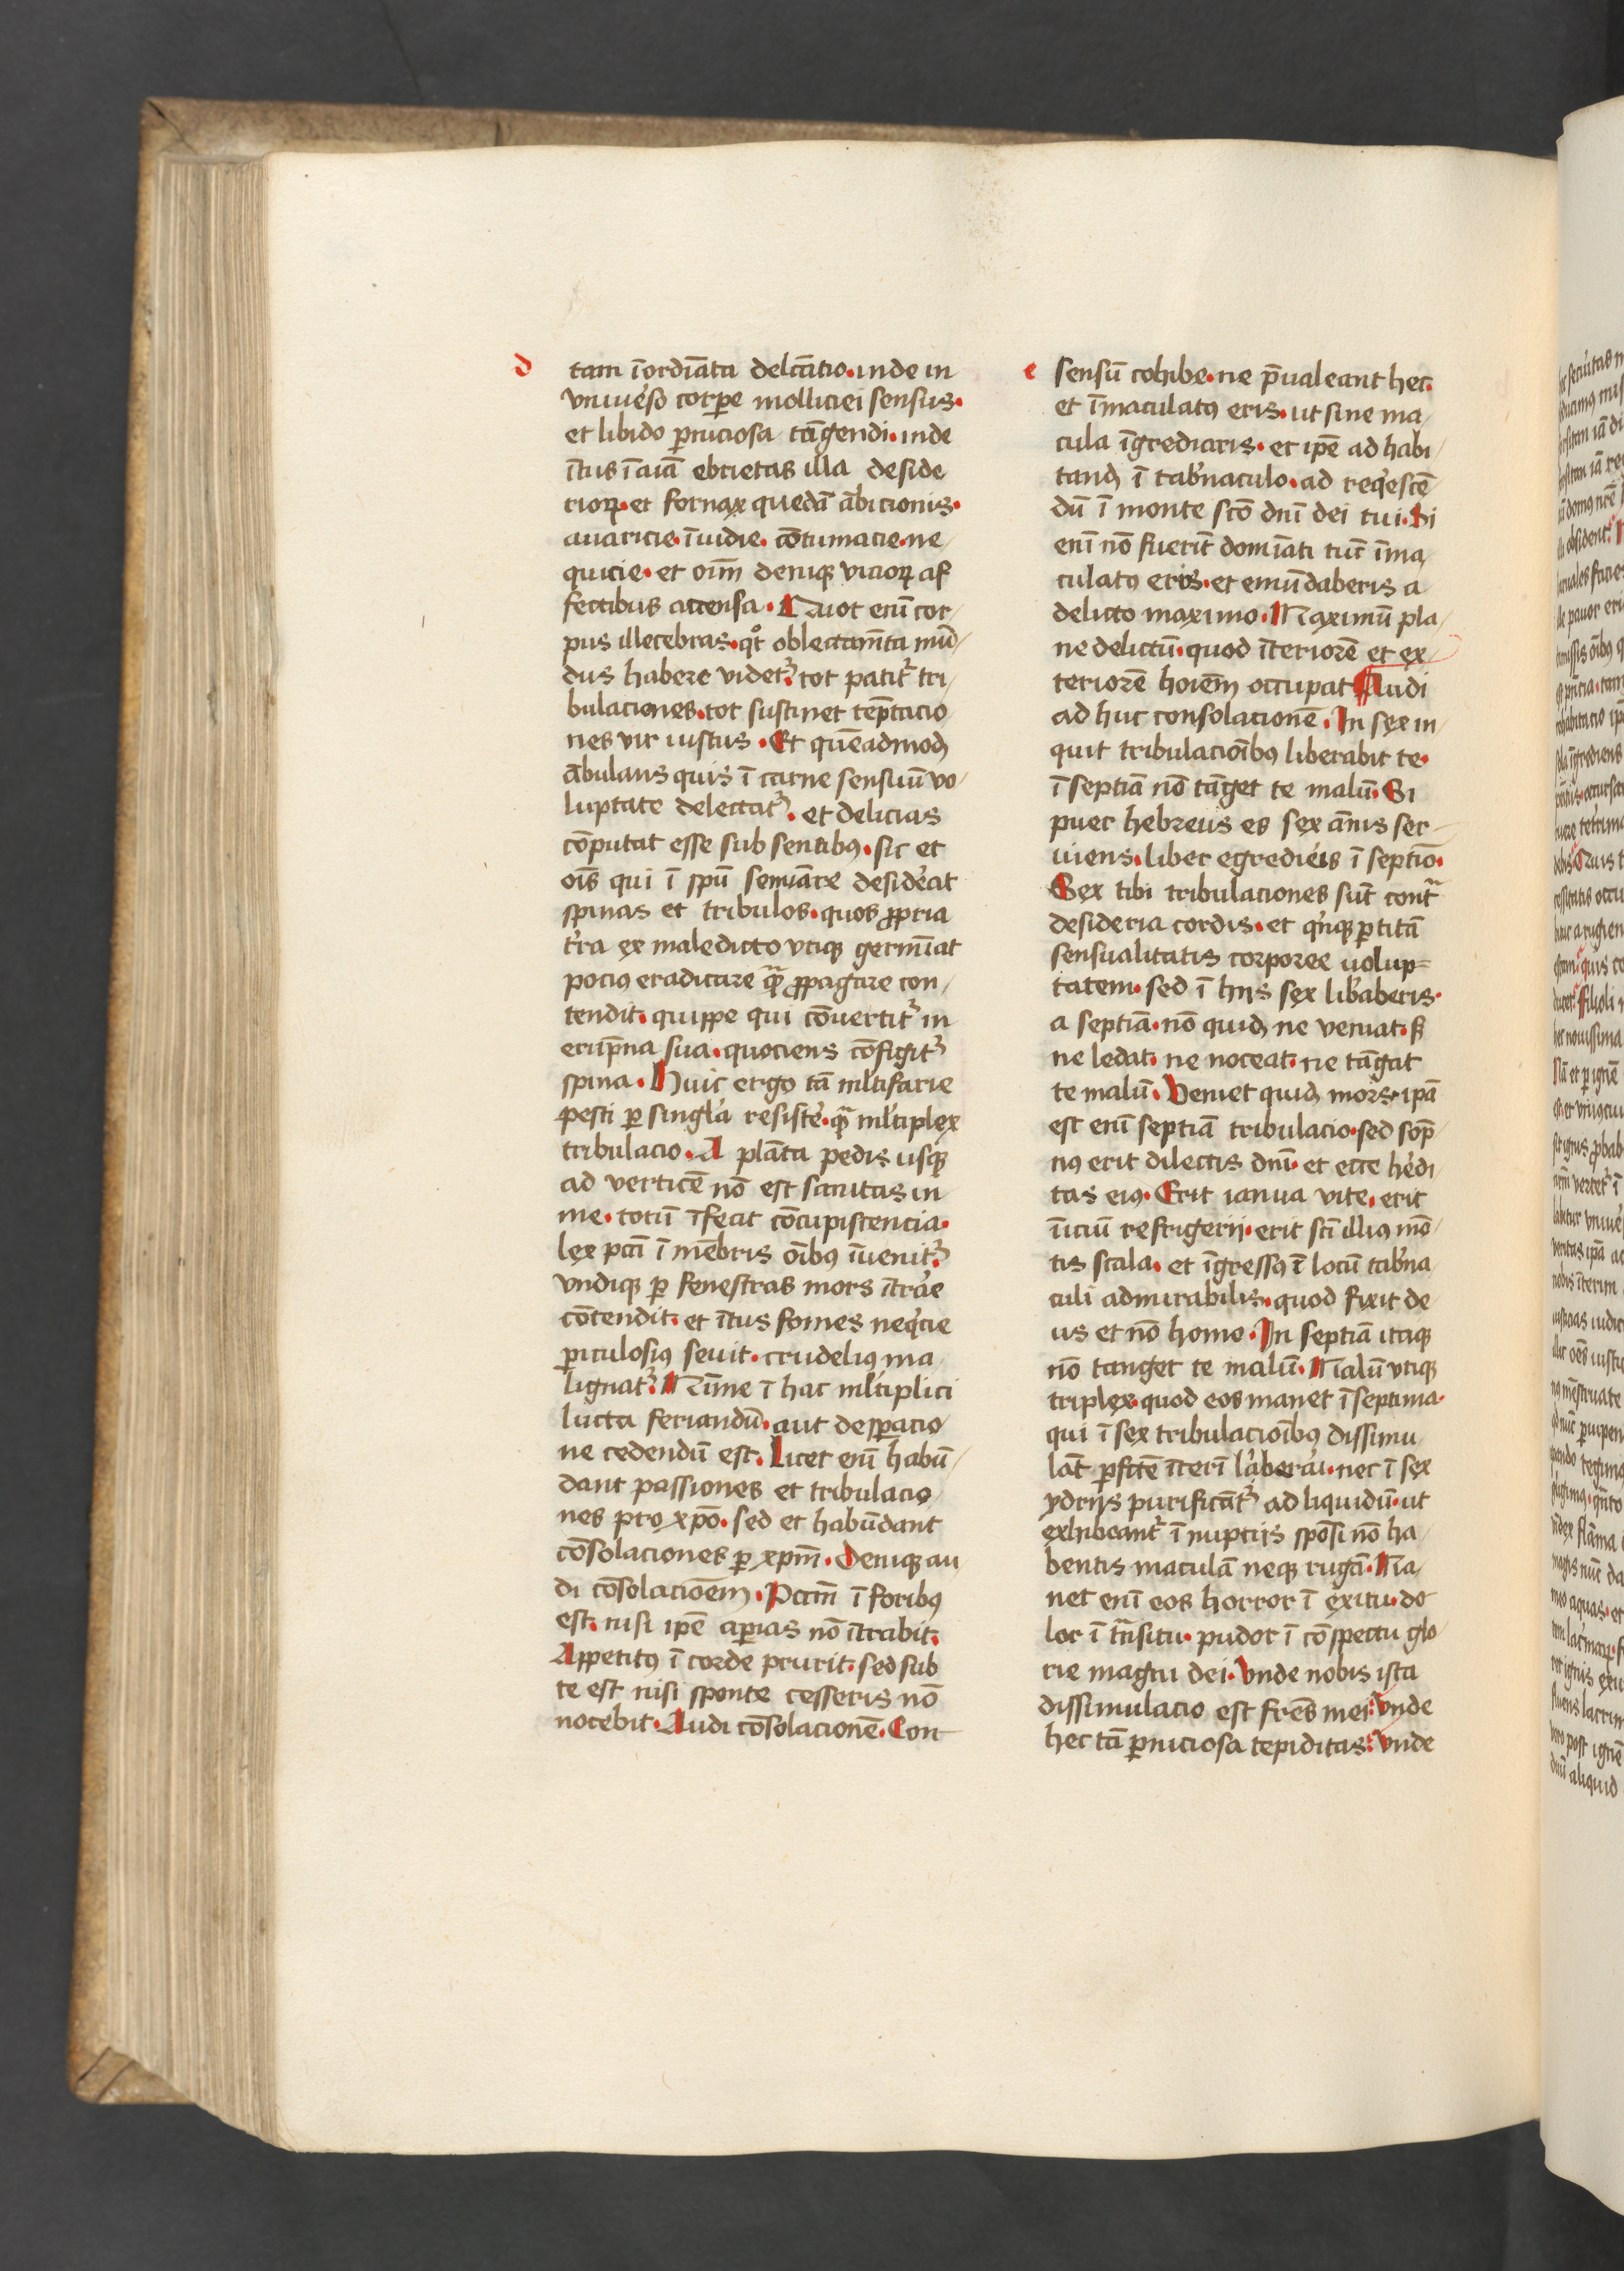 d
tam īordīata delc̄atio. inde in
vniuso corpe molliciei sensus.
et libido pniciosa tāgendi. inde
ītus ī aīaʒ ebrietas illa deside
rioꝝ. et fornax quedā ābicionis.
auaricie. īuidie. cōtumacie. ne
quicie. et oīm deniqꝫ vicioꝝ af
fectibus accensa. Quot enī cor-
pus illecebras. qͦt oblectamīta mūd-
dus habere videtʳ. tot patitʳ tri-
bulaciones. tot sustinet tēptacio
nes vir iustus. Et quēadmodꝫ
ābulans quis ī carne sensuū vo-
luptate delectatʳ. et delicias
cōputat esse sub sentibꝰ. sic et
oīs qui ī spū semīare desidat
spinas et tribulos. quos ꝓpria
tra ex maledicto vtiqꝫ germīat
pocius eradicare qͣꝫ ꝓpagare con-
tendit. quippe qui cōuertitʳ in
erūpna sua. quociens cōfigitʳ
spina. Huic ergo tā ml̄tifarie
pesti ꝑ singla resiste. qͣꝫ ml̄tiplex
tribulacio. A plāta pedis usqꝫ
ad verticē nō est sanitas in
me. totū īfecit cōcupiscencia.
lex pcc̄i ī mēbris oībꝰ īuenitʳ.
vndiqꝫ ꝑ fenestras mors ītrae
cōtendit. et ītus fomes neqͥcie
ꝑiculosiꝰ seuit. crudeliꝰ ma-
lignatʳ. Nūme ī hac ml̄tiplici
lucta feriandū. aut desꝑacio-
ne cedendū est. Licet enī habū-
dant passiones et tribulacio-
nes pro xp̄o. sed et habūdant
cōsolaciones ꝑ xp̄m. Deniqꝫ au
di cōsolacionēm. Pccm̄ ī foribꝰ
est. nisi ip̄e aꝑias nō ītrabit.
Appetitꝰ ī corde prurit. sed sub
te est nisi sponte cesseris nō
nocebit. Audi cōsolacionē. Con-
e
sensū cohibe. ne p̄ualeant hec.
et īmaculatꝰ eris. ut sine ma-
cula īgrediaris. et ip̄e ad habi-
tandꝫ ī tabnaculo. ad reqͥescē
dū ī monte scō dn̄i dei tui. Si
enī nō fuerīt domīati tūc īma-
culatꝰ eris. et emūdaberis a
delicto maximo. Maximū pla-
ne delictū. quod īteriorē et ex-
teriorē hoīem occupat Audi
ad huc consolacionē. In sex in-
quit tribulacioībꝰ liberabit te.
ī septīa nō tāget te malū. Si
puer hebreus es sex ānis ser-
uiens. liber egredieis ī septīo.
Sex tibi tribulaciones sūt contͣ
desideria cordis. et qͥnqꝫ ꝑtitā
sensualitatis corporee uolup=
tatem. sed ī hijs sex libaberis.
a septīa. nō quidꝫ ne veniat. sꝫ
ne ledat. ne noceat. ne tāgat
te malū. Veniet quidꝫ mors. ipā
est enī septīa tribulacio. sed sop̄
nꝰ erit dilectis dn̄i. et ecce hedi
tas eiꝰ. Erit ianua vite. erit
īiciū refrigerij. erit scī illiꝰ mō-
tis scala. et īgressꝰ ī locū tabna
culi admirabilis. quod fixit de
us et nō homo. In septīa itaqꝫ
nō tanget te malū. Malū vtiqꝫ
triplex. quod eos manet ī septima.
qui ī sex tribulacioībꝰ dissimu
lāt ꝑfcte īterī laberari. nec ī sex
ydrijs purificātʳ ad liquidū. ut
exhibeantʳ ī nuptijs sponsi nō ha-
bentis maculā neqꝫ rugā. Ma-
net enī eos horror ī exitu. do
lor ī trāsitu. pudor ī cōspectu glo-
rie magni dei. Vnde nobis ista
dissimulacio est fr̄es mei. Vnde
hec tā ꝑniciosa tepiditas. Vnde